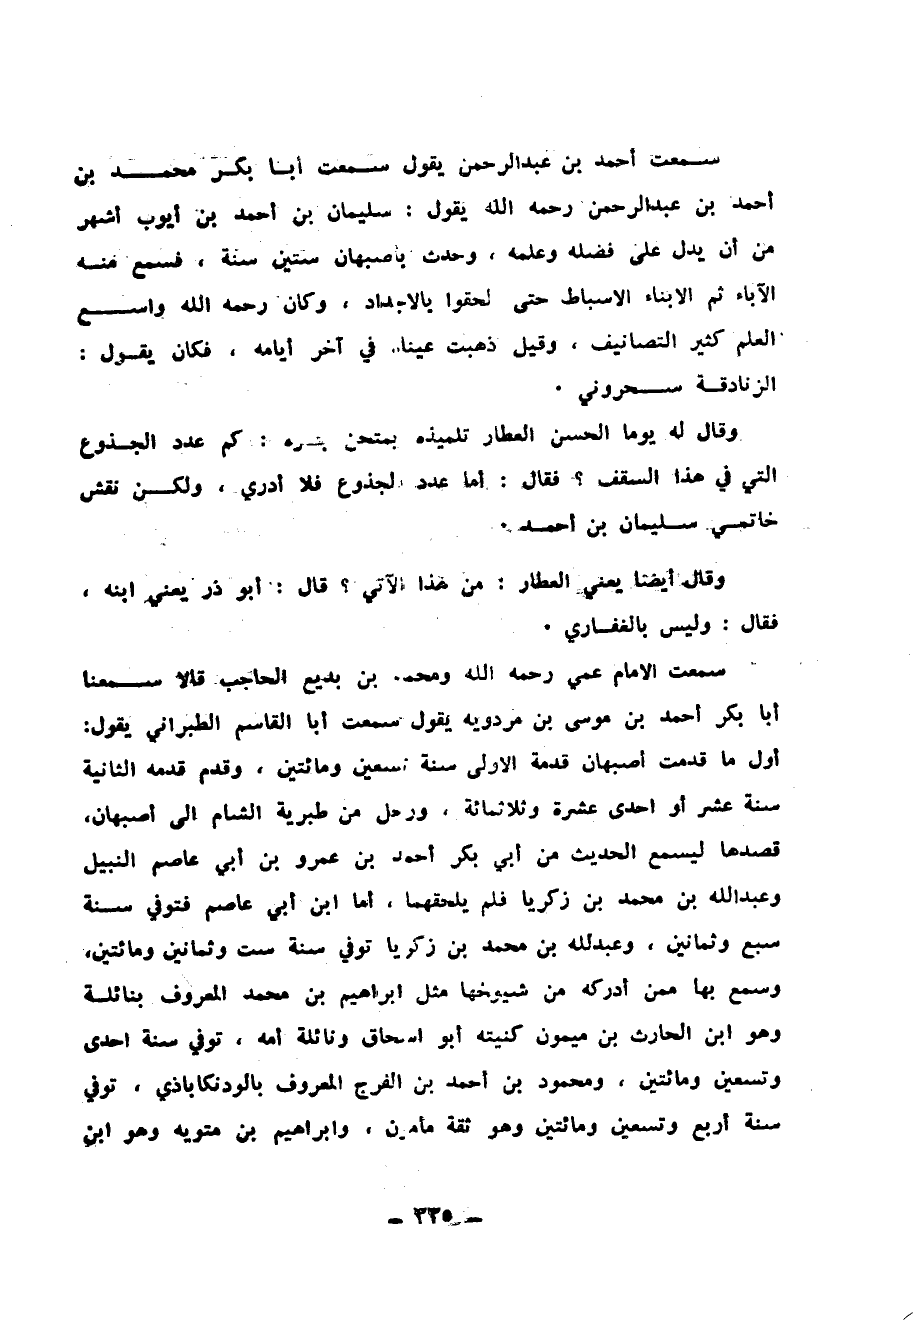 سمعت أحمد بن عبدالرحمن يقول سمعت أبا بكر محمد بن
أحمد بن عبدالرحمن رحمه الله يقول : سليمان بن أحمد بن أيوب أشهر
من أن يدل على فضله وعلمه ، وحدث بأصبهان ستين سنة ، فسمع منه
الآباء ثم الابناء الاسباط حتى لحقوا بالاجداد ، وكان رحمه الله واسع
العلم كثير التصانيف ، وقيل ذهبت عيناه في آخر أيامه ، فكان يقول :
الزنادقة سحروني ٠
وقال له يوما الحسن العطار تلميذه يمتحن بصره : كم عدد الجذوع
التي في هذا السقف ؟ فقال : أما عدد الجذوع فلا أدري ، ولكن نقش
خاتمي سليمان بن أحمد ٠
وقال أيضا يعني العطار : من هذا الآتي ؟ قال : أبو ذر يعني ابنه ،
فقال : وليس بالغفاري ٠
سمعت الامام عمي رحمه الله ومحمد بن بديع الحاجب قالا سمعنا
أبا بكر أحمد بن موسى بن مردويه يقول سمعت أبا القاسم الطبراني يقول:
أول ما قدمت أصبهان قدمة الاولى سنة تسعين ومائتين ، وقدم قدمه الثانية
سنة عشر أو احدى عشرة وثلاثمائة ، ورحل من طبرية الشام الى أصبهان،
قصدها ليسمع الحديث من أبي بكر أحمد بن عمرو بن أبي عاصم النبيل
وعبدالله بن محمد بن زكريا فلم يلحقهما ، أما ابن أبي عاصم فتوفي سنة
سبع وثمانين ، وعبدلله بن محمد بن زكريا توفي سنة ست وثمانين ومائتين،
وسمع بها ممن أدركه من شيوخها مثل ابراهيم بن محمد المعروف بنائلة
وهو ابن الحارث بن ميمون كنيته أبو اسحاق ونائلة أمه ، توفي سنة احدى
وتسعين ومائتين ، ومحمود بن أحمد بن الفرج المعروف بالودنكاباذي ، توفي
سنة أربع وتسعين ومائتين وهو ثقة مأمون ، وابراهيم بن متويه وهو ابن
– ٣٣٥ –